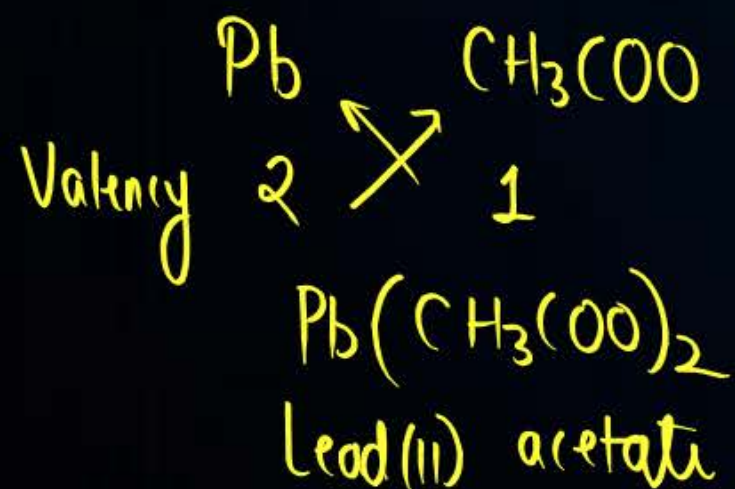 Pb CH₃COO
Valency 2 1
Pb(CH₃COO)₂
Lead(II) acetate